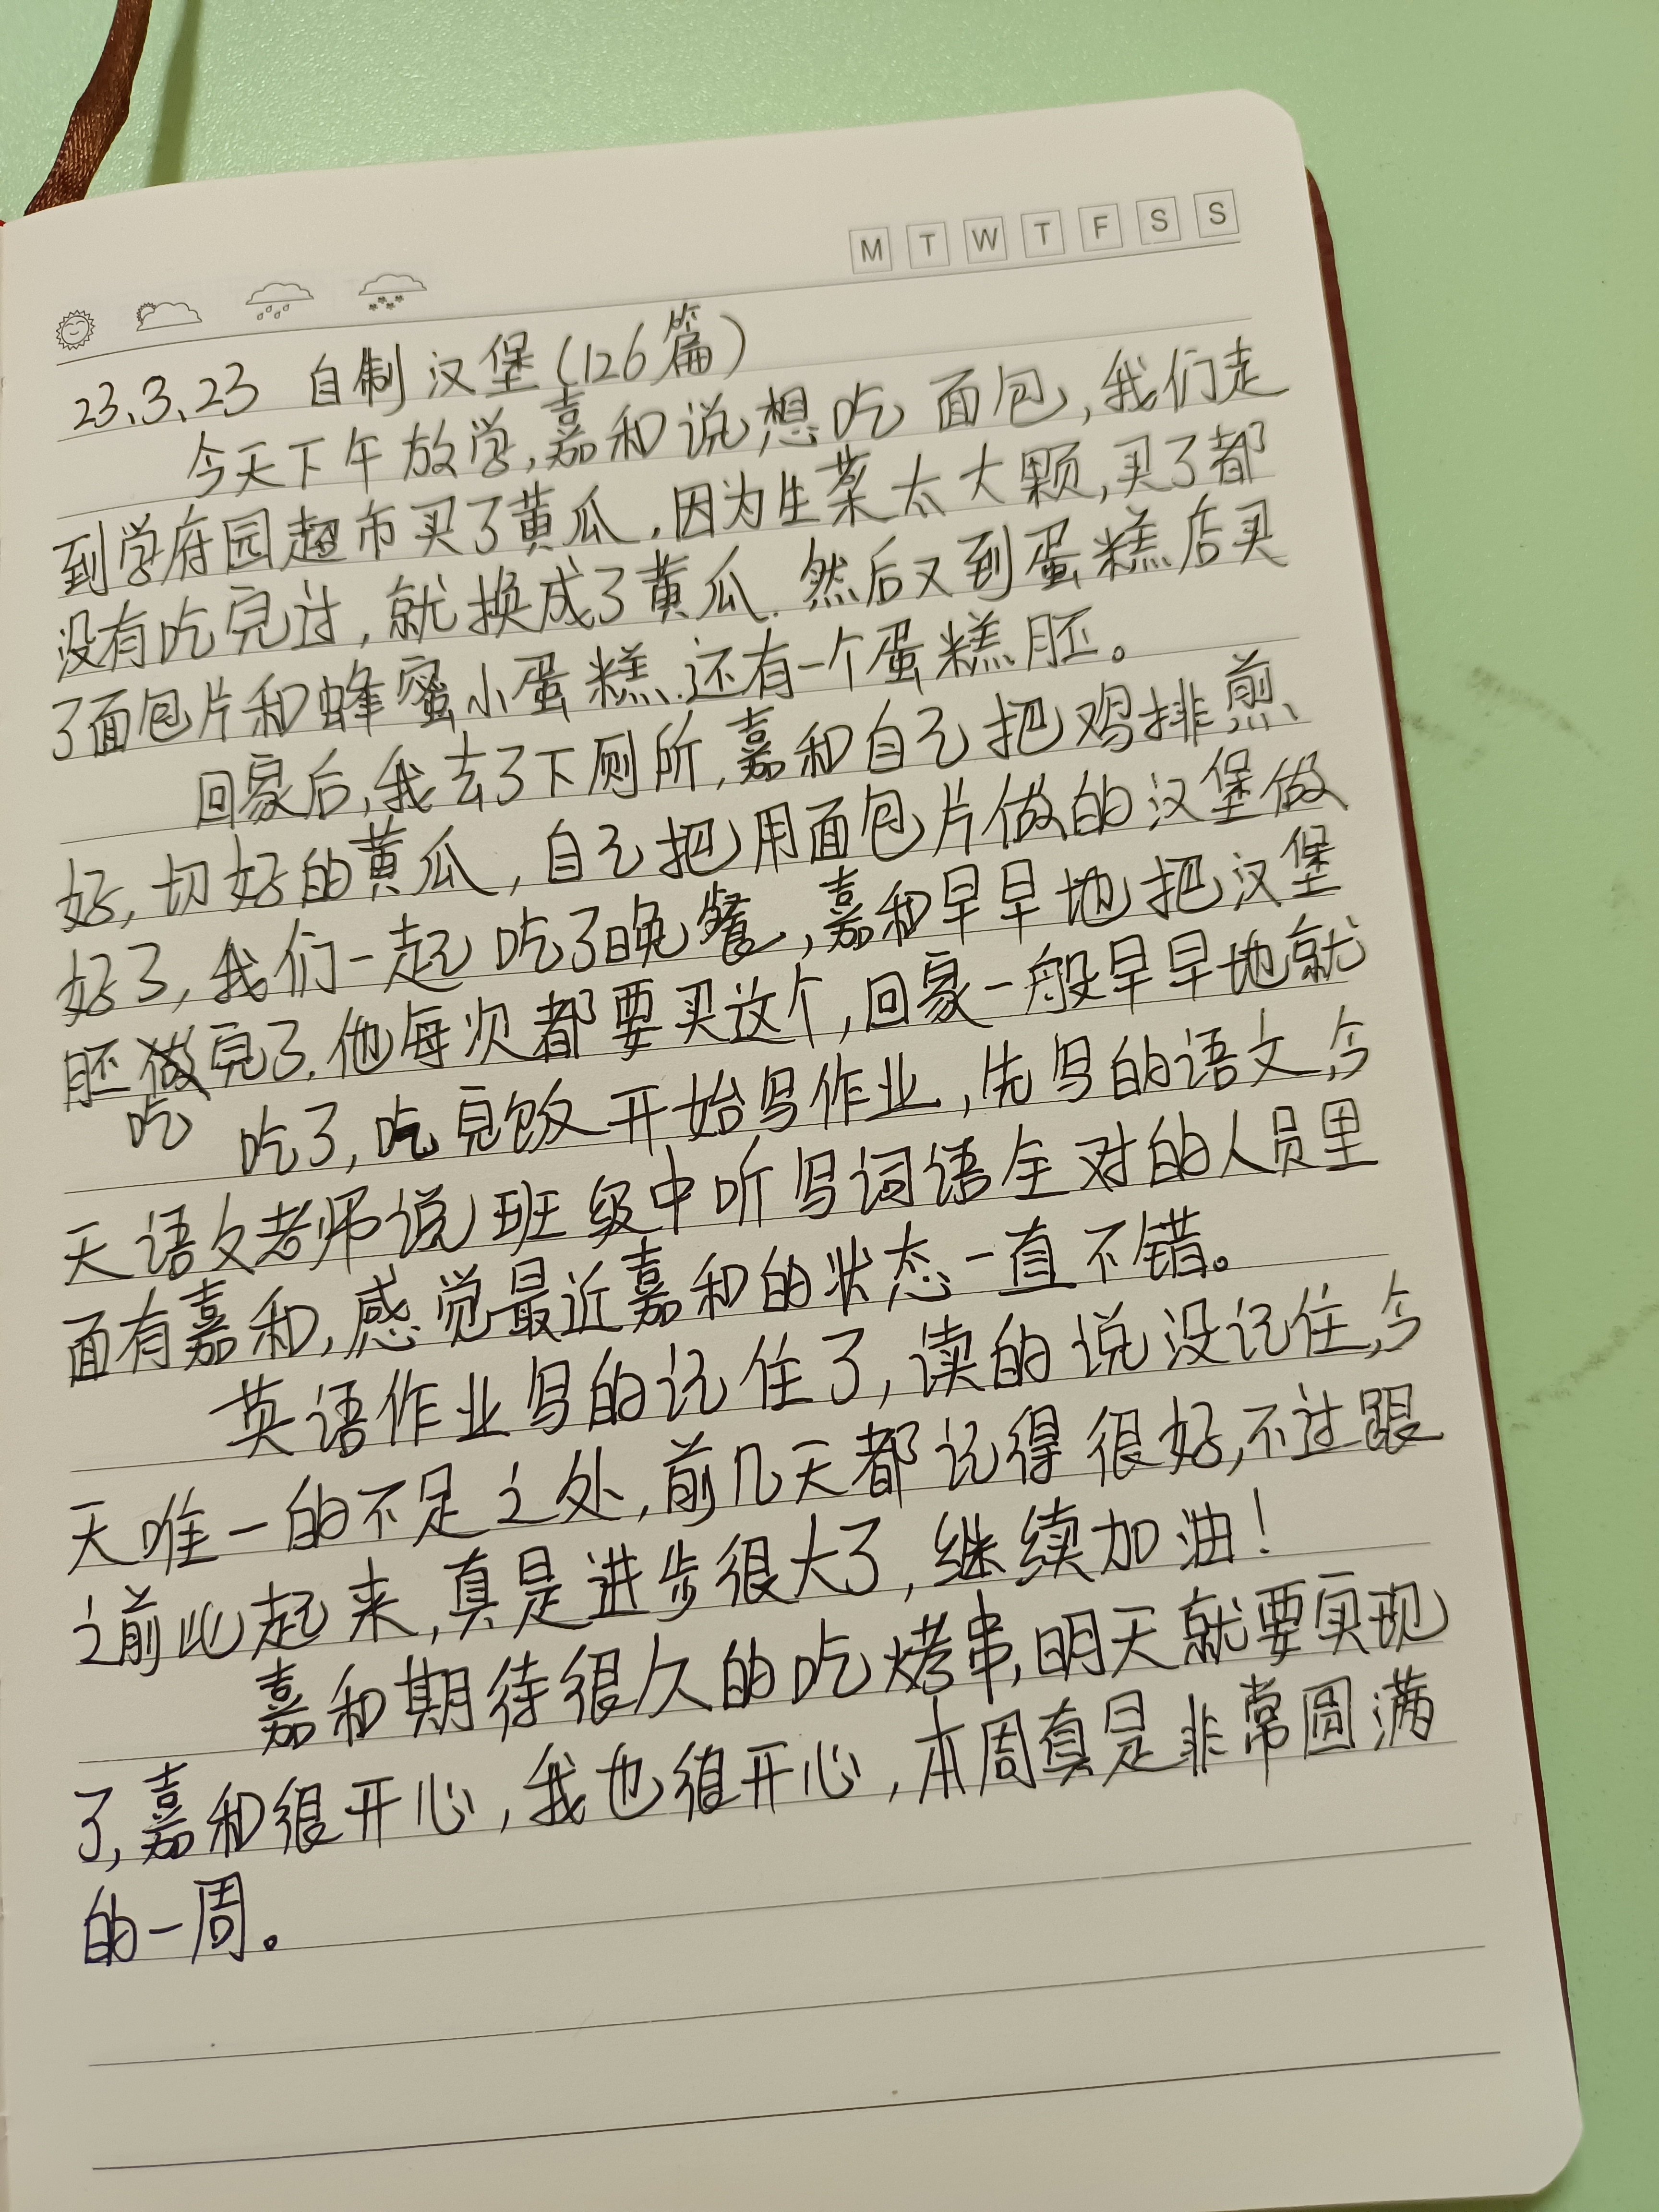 M T W T F S S
23.3.23 自制汉堡(126篇)
今天下午放学,嘉和说想吃面包,我们走
到学府园超市买了黄瓜.因为生菜太大颗,买了都
没有吃完过,就换成了黄瓜.然后又到蛋糕店买
了面包片和蜂蜜小蛋糕.还有一个蛋糕胚。
回家后,我去了下厕所,嘉和自己把鸡排煎
好,切好的黄瓜,自己把用面包片做的汉堡做
好了,我们一起吃了晚餐,嘉和早早地把汉堡
胚做完了.他每次都要买这个,回家一般早早地就
吃 吃了,吃完饭开始写作业,先写的语文,今
天语文老师说班级中听写词语全对的人员里
面有嘉和,感觉最近嘉和的状态一直不错。
英语作业写的记住了,读的说没记住,今
天唯一的不足之处,前几天都记得很好,不过跟
之前比起来,真是进步很大了,继续加油!
嘉和期待很久的吃烤串,明天就要实现
了,嘉和很开心,我也很开心,本周真是非常圆满
的一周。